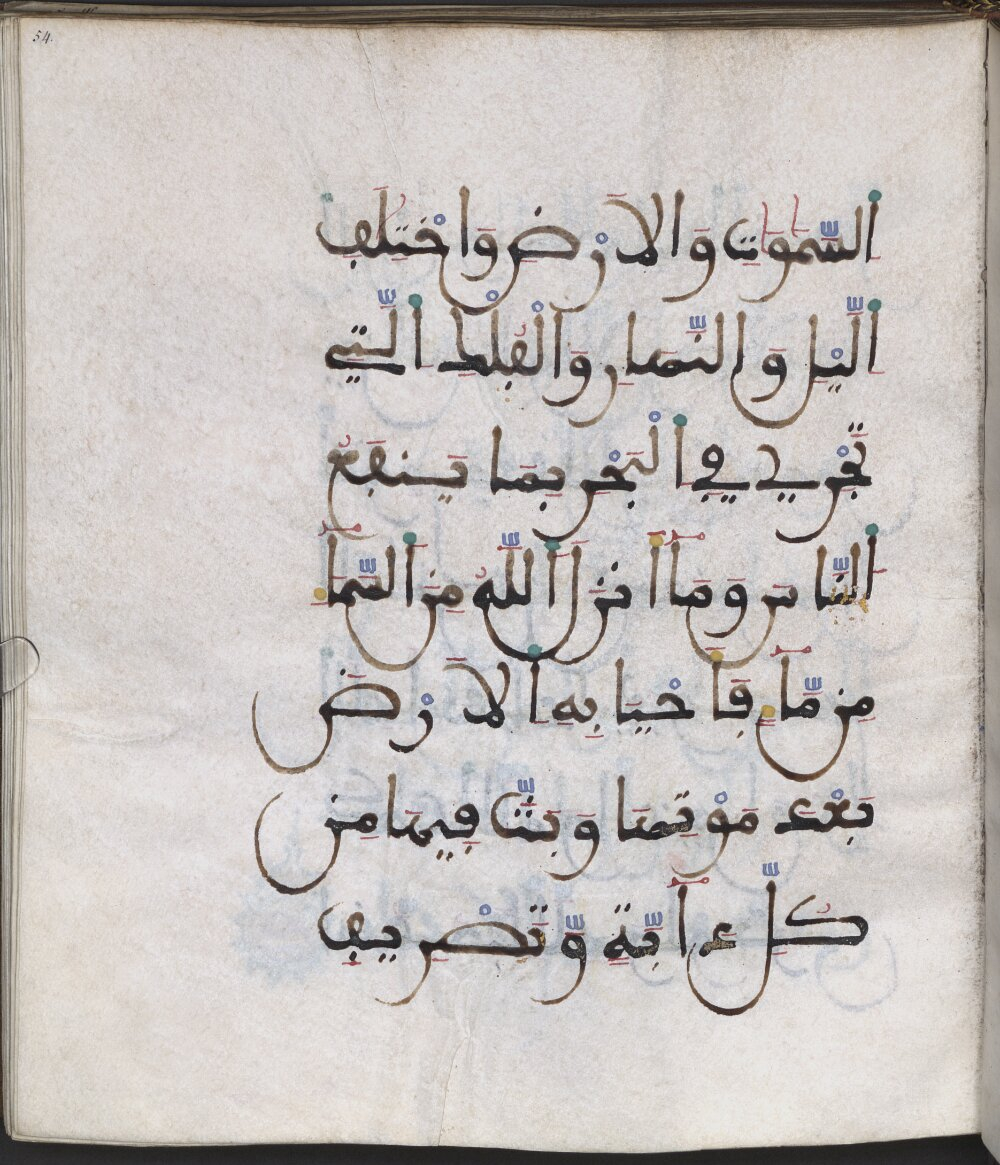 54.
اَ۬لسَّمَٰوَٰتِ وَالَارْضِ وَاخْتِلَٰفِ
اِ۬ليْلِ وَالنَّهارِ وَالْفُلْكِ اِ۬لتِي
تَجْرِي فِي اِ۬لْبَحْرِ بِمَا يَنفَعُ
اُ۬لنَّاسَ وَمَآ أَنزَلَ اَ۬للَّهُ مِنَ اَ۬لسَّمَآءِ
مِن مَّآءٍ فَأَحْيَا بِهِ اِ۬لَارْضَ
بَعْدَ مَوْتِهَا وَبَثَّ فِيهَا مِن
كُلِّ دَآبَّةٍ وَّتَصْرِيفِ